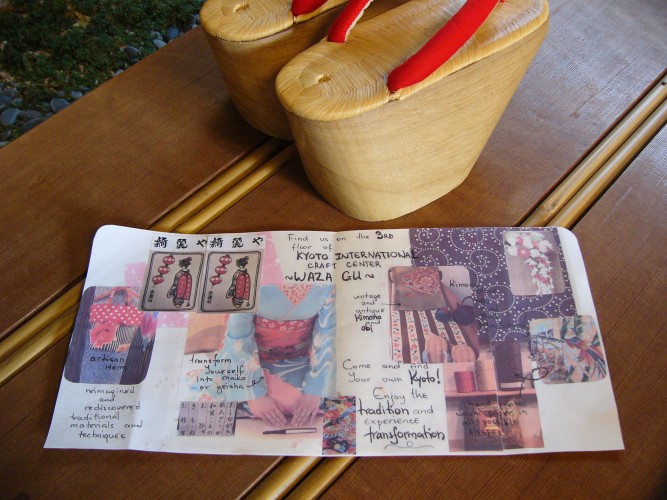 綺麗や 綺麗や
Find us on the 3RD
floor of
KYOTO INTERNATIONAL
CRAFT CENTER
~WAZA GU~
Kimono
vintage
and
antique
Kimono
and
obi
artisan
items
transform
Yourself
into maiko
or geisha
reimagined
and
rediscovered
traditional
materials and
techniques
Come and find
Your own Kyoto!
Enjoy the
tradition and
EXPERIENCE
transformation
in all possible